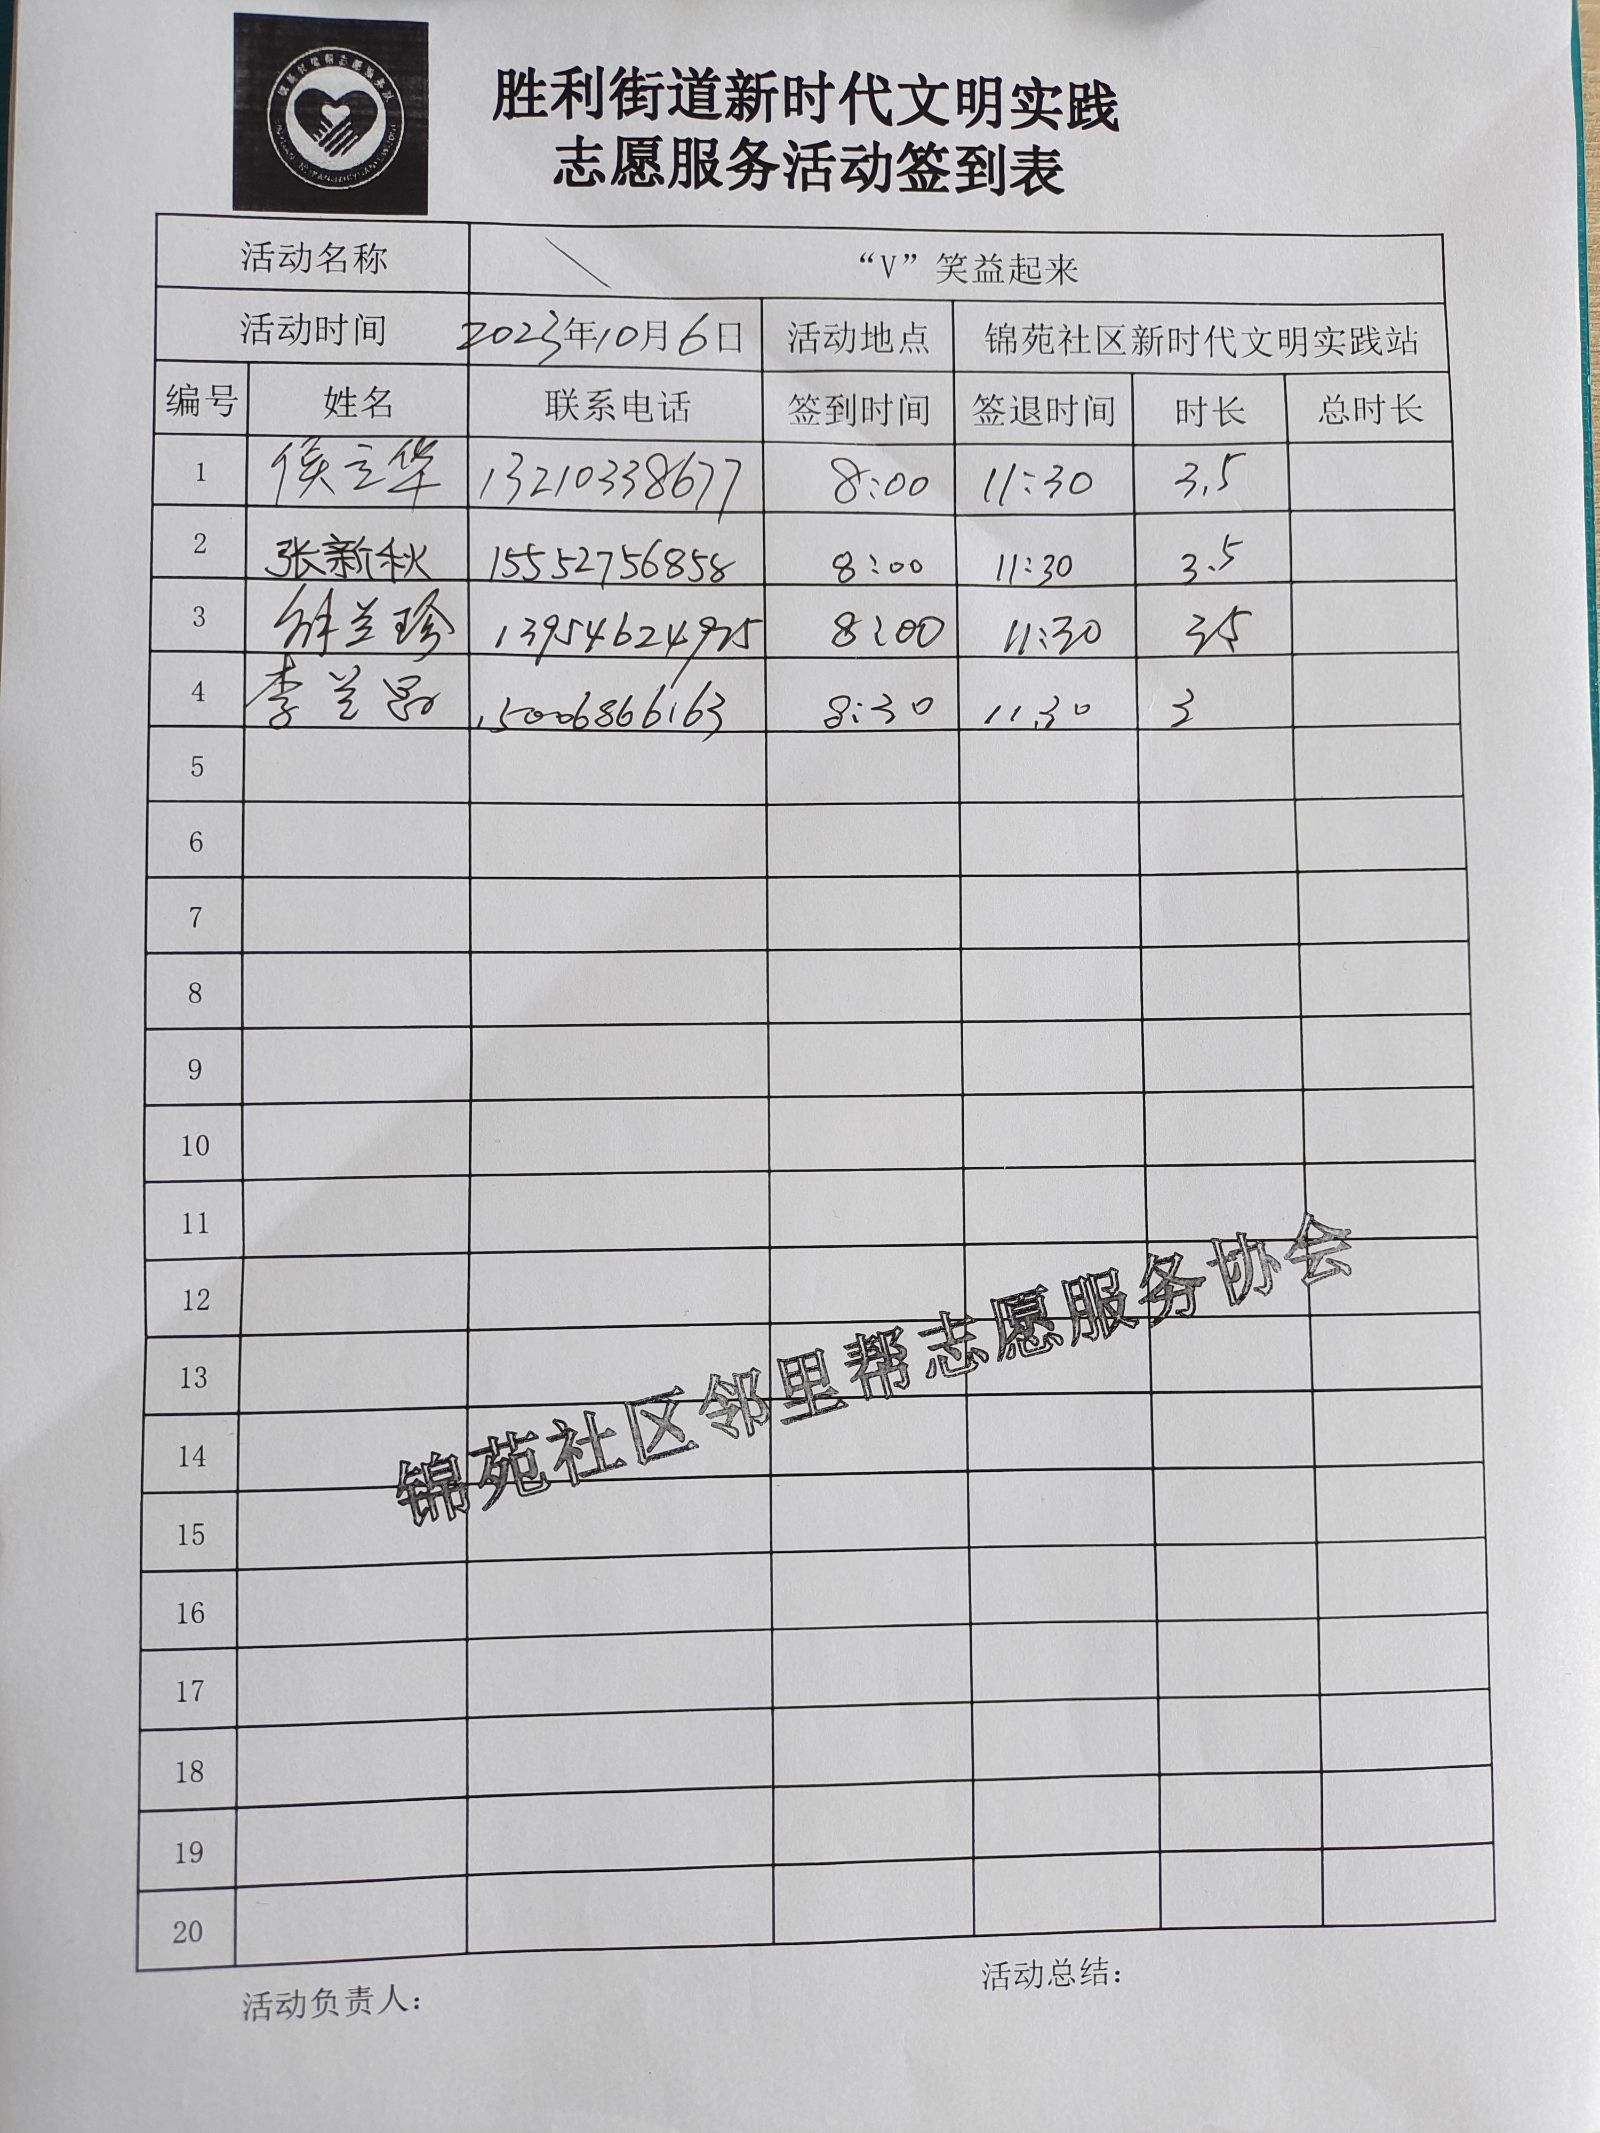 胜利街道新时代文明实践
志愿服务活动签到表
活动名称 “V”笑益起来
活动时间 2023年10月6日 活动地点 锦苑社区新时代文明实践站
编号 姓名 联系电话 签到时间 签退时间 时长 总时长
1 侯立华 13210338677 8:00 11:30 3.5
2 张新秋 15552756858 8:00 11:30 3.5
3 兰珍 13954624925 8:00 11:30 3.5
4 李兰 15006866163 8:30 11.30 3
5
6
7
8
9
10
11
12
13
14
15
16
17
18
19
20
锦苑社区邻里帮志愿服务协会
活动负责人： 活动总结：